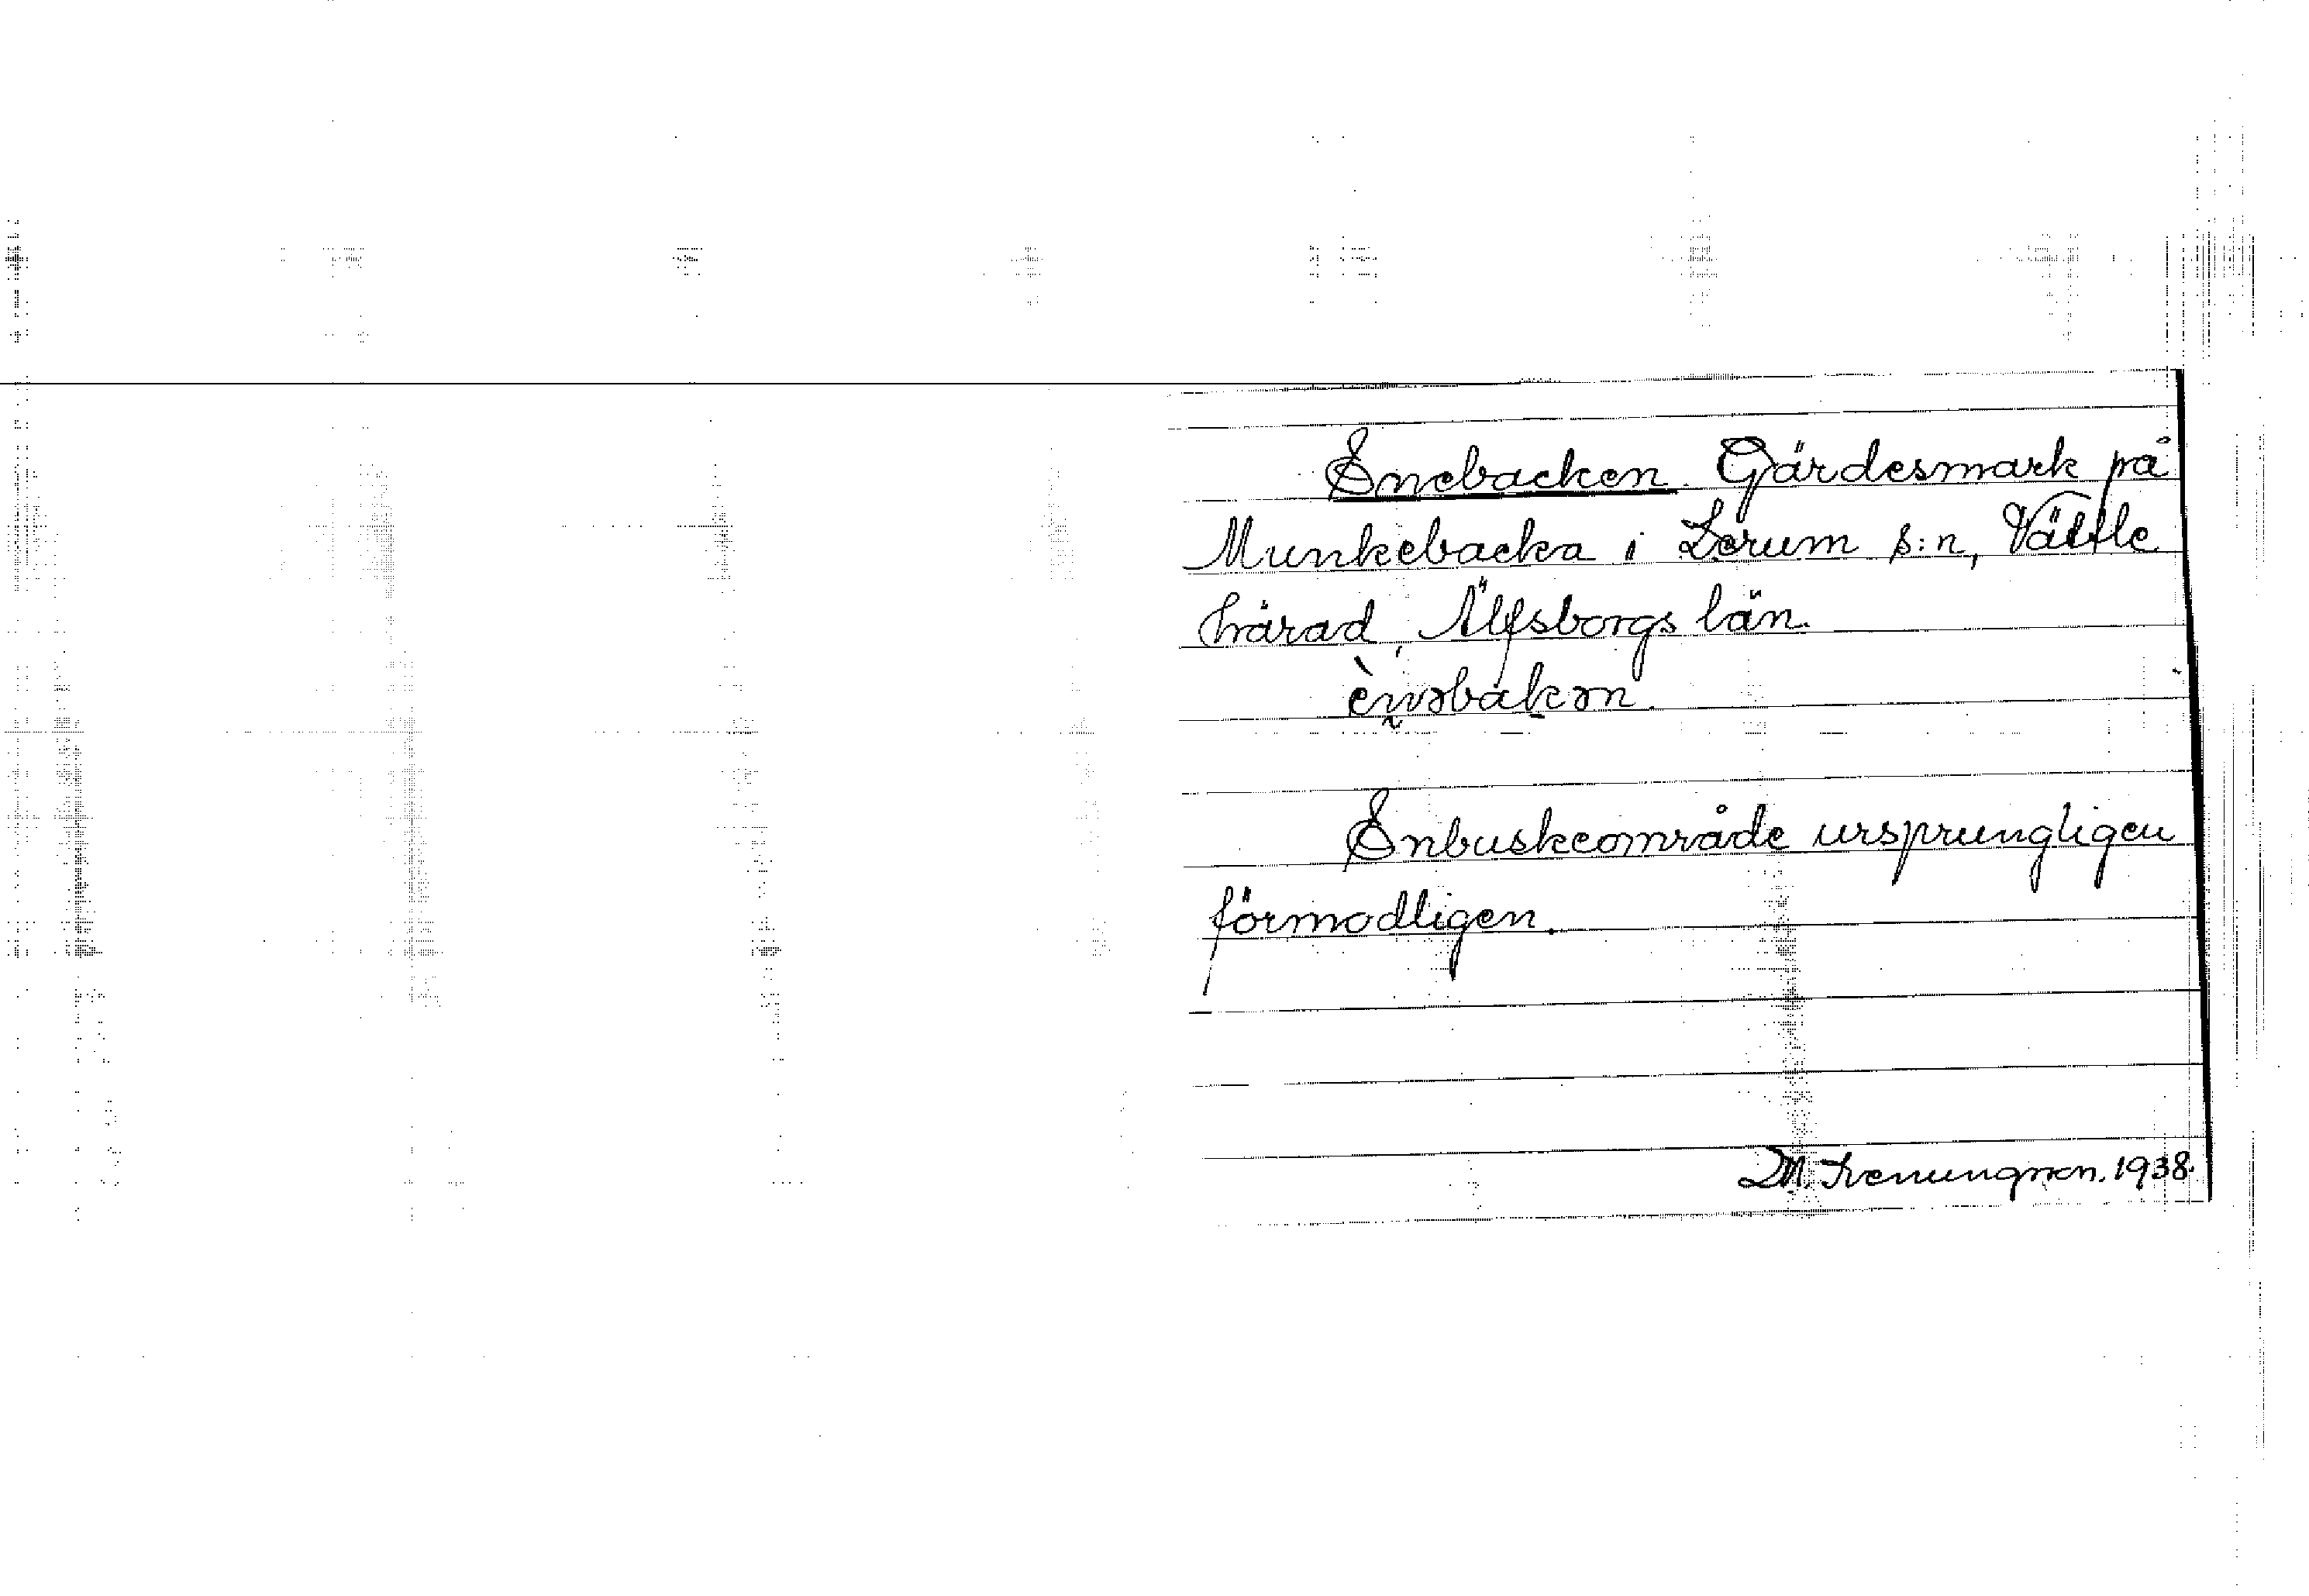 Enebacken. Gärdesmark på
Munkebacka i Lerum s:n, Vättle
härad, Älfsborgs län.
Enbuskeområde ursprungligen
förmodligen.
1938.